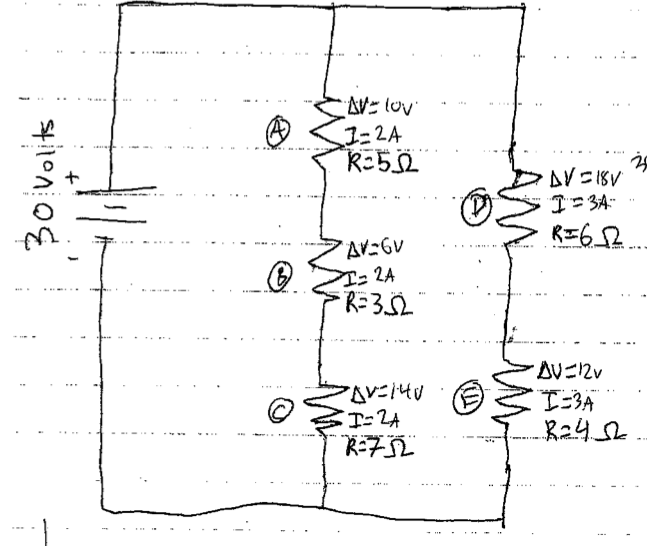 30 volts
+
-
A
ΔV=10V
I=2A
R=5Ω
B
ΔV=6V
I=2A
R=3Ω
C
ΔV=14V
I=2A
R=7Ω
D
ΔV=18V
I=3A
R=6Ω
E
ΔV=12V
I=3A
R=4Ω